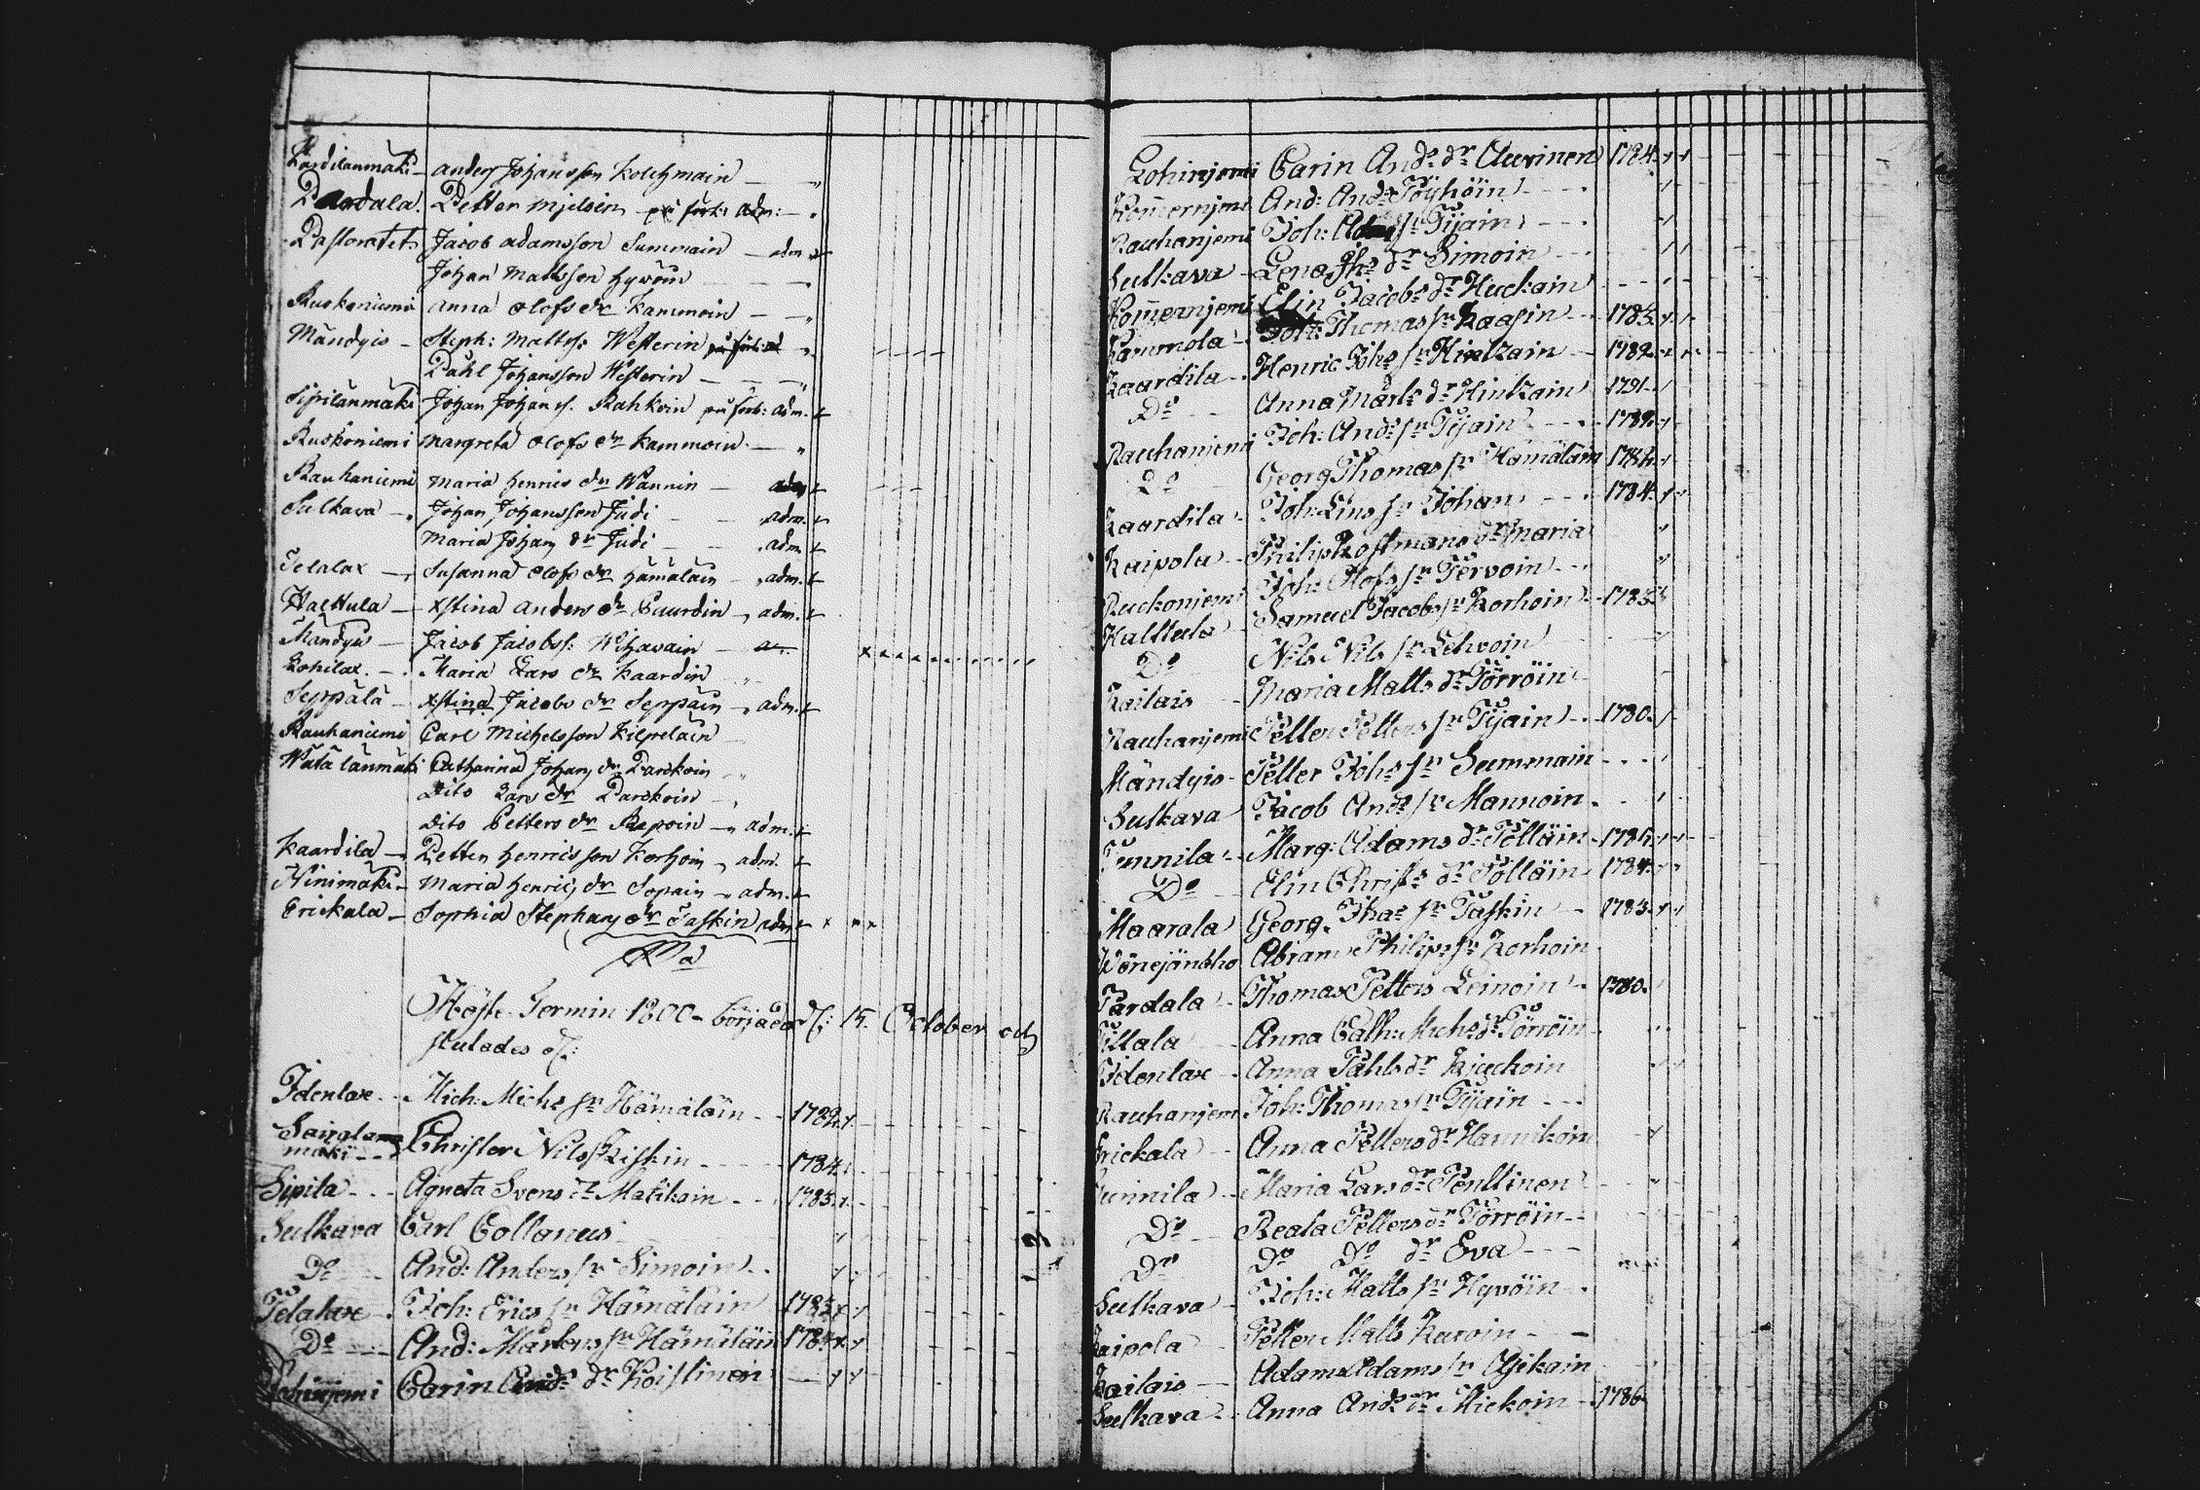 Kardilanmäki anders Johansson Kolehmain
Pardala Petter Mjelsein på förb: adm:
Pastoratet Jacob adamsson Summain adm
Johan Mattsson Hyvöin
Ruskoniemi anna olofs dr Kammoin
Mändyis Steph: Mattss: Westerin på förb: ad
Påhl Johansson Westerin
Sipilänmäki Johan Johanss. Rahkoin på förb: adm.
Ruskoniemi margreta olofs dr Kammoin
Rauhaniemi maria Henrics dr Wannin adm
Sulkava Johan Johansson Judi adm.
maria Johans dr Judi adm.
Telalax Susanna olofs dr Hämäläin adm.
Halttula xstina anders dr Paurdin adm.
Mändyis Jacob Jacobss: Wihavain
Lohilax Maria Lars dr Kaardin
Seppälä xstina Jacobs dr Seppäin adm.
Rauhaniemi Carl Michelsson Kilpeläin
Wätälänmäki Catharina Johans dr Parckoin
Dito Lars dr Parckoin
Dito Petters dr Repoin adm.
Kaardila Petter Henricsson Korhoin adm.
Ninimäki maria Henrics dr Sopain adm.
Erickala Sophia Stephans dr Taskin adm
Höste Termin 1800 börjades d: 15. October och
slutades d:
Idenlax Mich: Michs sr Hämäläin 1782
Sairalamäki Christer Nils sr Kiskin 1784
Sipila Agneta Svens dr Matikain 1785
Sulkava Carl Collanus
Do And: Anders sr Simoin
Telalax Joh: Erics sr Hämäläin 1785
Do And: Mårtens sr Hämäläin 1784
Carin Ands dr Koistinen
Lohinjemi Carin Ands dr Auvinen 1784
Kommernjemi And: Ands Töyhöin
Rauhanjemi Joh: sr Tijain
Sulkava Lena Jhs dr Simoin
Kommernjemi Elin Jacobs dr Huckain
Kammola Joh: Thomas sr Kaasin 1785
Kaardila Henric Johs sr Hintzain 1782
Do Anna Mårts dr Hintzain 1791
Rauhanjemi Joh: Ands sr Tijain 1782
Do Georg Thomas sr Hämäläin 1784
Kaardila Joh: Lins sr Johan 1784
Kaipola Philip Rostmans dr Maria
Ruckonjemi Joh: Olofs sr Tervoin
Halttula Samuel Jacobs sr Korhoin 1785
Do Nils Nils sr Lehvoin
Kailais Maria Matts dr Törröin
Rauhanjemi Petter Petters sr Tijain 1780
Mändyis Petter Johs sr Summain
Sulkava Jacob Ands sr Mannoin
Junnila Marg: Adams dr Pölläin 1784
Do Elin Christs dr Pölläin 1784
Maarala Georg Thas sr Taskin 1783
Abram Philips sr Korhoin
Pardala Thomas Petters Leinoin 1780
Anna Cath: Michs dr Törröin
Idenlax Anna Påhls dr Kjuckoin
Rauhanjem Joh: Thomas sr Tijäin
Erickala Anna Petters dr Hannikoin
Junnila Maria Lars dr Penttinen
Do Beata Petters dr Törröin
Do Do Do dr Eva
Sulkava Joh: Matts sr Hyvöin
Kaipola Petter Matts Kuroin
Kailais Adam Adams sr Ojekain
Sulkava Anna Ands dr Mickoin 1786